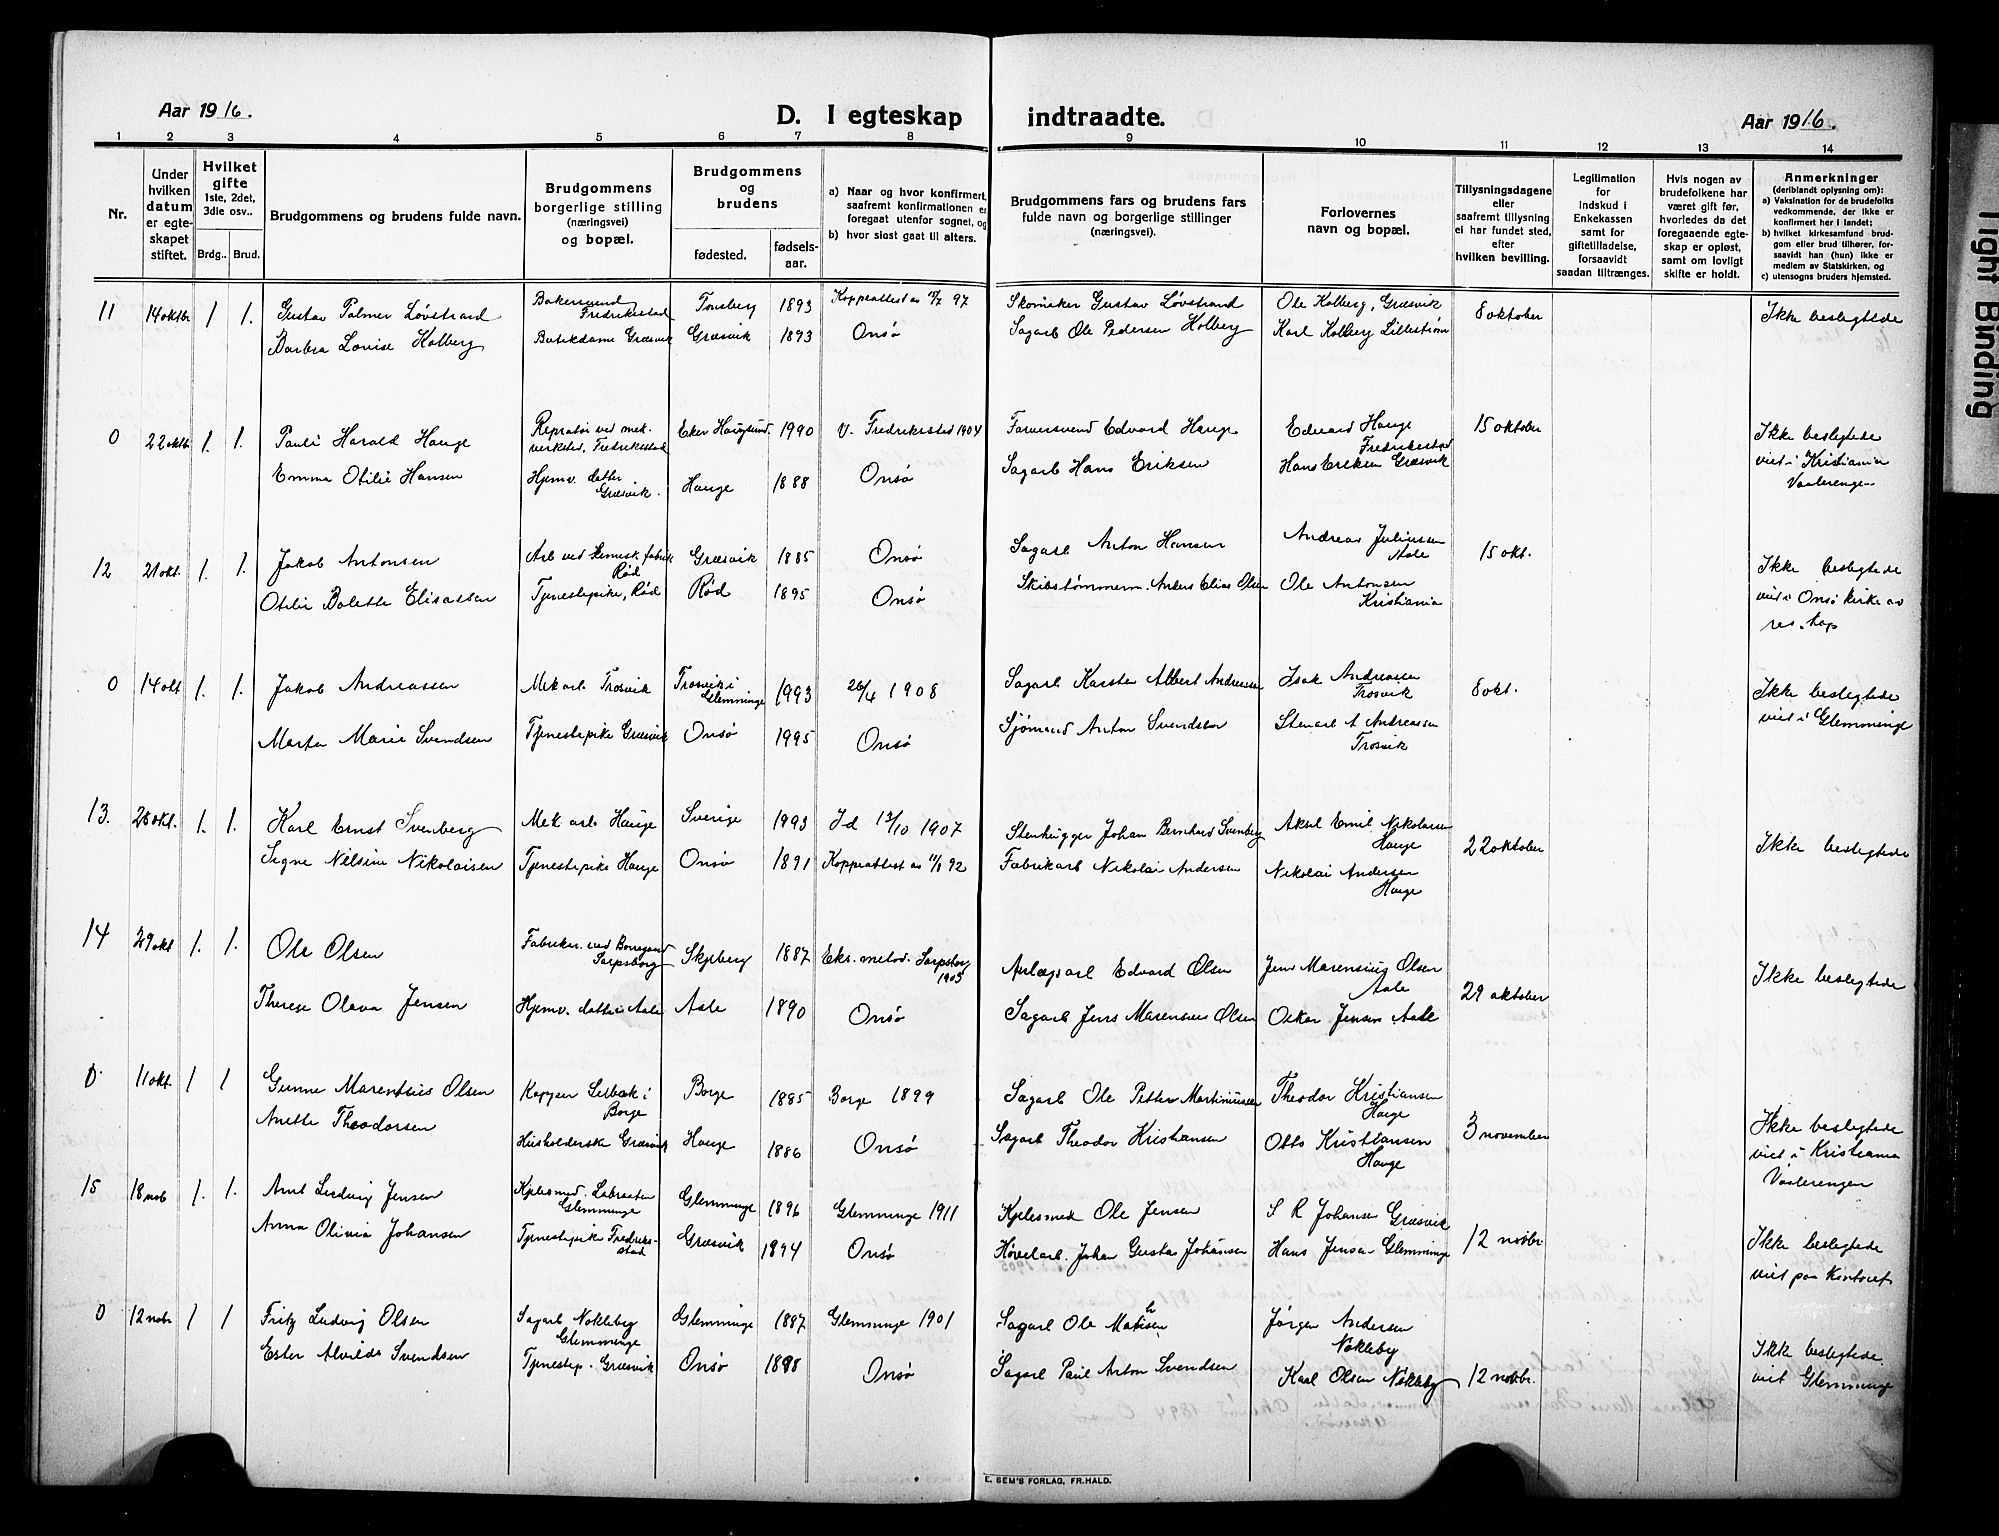 Aar 1916.
D. I egteskap indtraadte.
Aar 1916.
1 2 3 4 5 6 7 8 9 10 11 12 13 14
Nr.
Under hvilken datum er egteskapet stiftet.
Hvilket gifte 1ste, 2det, 3die osv..
Brdg.. Brud.
Brudgommens og brudens fulde navn.
Brudgommens borgerlige stilling (næringsvei) og bopæl.
Brudgommens og brudens
fødested. fødsels-aar.
a) Naar og hvor konfirmert, saafremt konfirmationen er foregaat utenfor sognet, og
b) hvor sidst gaat til alters.
Brudgommens fars og brudens fars fulde navn og borgerlige stillinger (næringsvei).
Forlovernes navn og bopæl.
Tillysningsdagene eller saafremt tillysning ei har fundet sted, efter hvilken bevilling.
Legitimation for indskud i Enkekassen samt for giftetilladelse, forsaavidt saadan tiltrænges.
Hvis nogen av brudefolkene har været gift før, hvorledes da det foregaaende egteskap er opløst, samt om lovligt skifte er holdt.
Anmerkninger (deriblandt oplysning om): a) Vaksination for de brudefolks vedkommende, der ikke er konfirmert her i landet: b) hvilket kirkesamfund brudgom eller brud tilhører, forsaavidt han (hun) ikke er medlem av Statskirken, og c) utensogns bruders hjemsted.
11 14 oktbr 1 1. Gustav Palmer Løvstrand Bakersvend Fredrikstad Tønsberg 1893 Koppeattest av 97 Skomaker Gustav Løvstrand Ole Kolberg, Græsvik 8 oktober Ikke beslegtede
Barbra Lovise Kolberg Butikdame Græsvik Græsvik 1893 Onsø Sagarb Ole Pedersen Kolberg Karl Kolberg Lillestrøm
0 22 oktbr 1. 1. Pauli Harald Hauge Repratør ved mek. verksted, Fredrikstad Eker Hauglund. 1990 V. Fredrikstad 1904 Farversvend Edvard Hauge Edvard Hauge Fredrikstad 15 oktober Ikke beslegtede viet i Kristiania Vaalerengen
Emma Otilie Hansen Hjemv. datter Græsvik. Hauge 1888 Onsø Sagarb Hans Eriksen Hans Eriksen Græsvik
12 21 okt. 1. 1. Jakob Antonsen Arb ved kemisk. fabrik Rød Græsvik 1885 Onsø Sagarb Anton Hansen Andreas Juliussen Aale 15 okt. Ikke beslegtede viet i Onsø kirke av res. kap
Otilie Bolette Elisassen Tjenestepike, Rød Rød 1895 Onsø Skibstømmerm. Anders Elias Olsen Ole Antonsen Kristiania
0 14 okt 1. 1. Jakob Andreassen Mek arb. Trosvik Trosvik i Glemminge 1993 26/4 1908 Sagarb Karsten Albert Andreassen Isak Andreassen Trosvik 8 okt. Ikke beslegtede viet i Glemminge
Marta Marie Svendsen Tjenestepike Græsvik Onsø 1995 Onsø Sjømand Anton Svendsen Stenarb A Andreassen Trosvik
13. 28 okt. 1. 1. Karl Ernst Svenberg Mek arb. Hauge Sverige 1993 Id 13/10 1907 Stenhugger Johan Bernhard Svenberg Aksel Emil Nikolaisen Hauge 22 oktober Ikke beslegtede
Signe Nilsine Nikolaisen Tjenestepike Hauge Onsø 1891 Koppeattest av 92 Fabrikarb Nikolai Andersen Nikolai Andersen Hauge
14 29 okt 1. 1. Ole Olsen Fabrikar. ved Borregaard Sarpsborg Skjeberg 1887 Eks. metod. Sarpsborg 1905 Anlægsarb Edvard Olsen Jens Marensius Olsen Aale 29 oktober Ikke beslegtede
Therese Olava Jensen Hjemv. datter i Aale Aale 1890 Onsø Sagarb Jens Marensius Olsen Oskar Jensen Aale
0 11 okt. 1 1 Gunne Marentius Olsen Kapper Selbak i Borge Borge 1885 Borge 1899 Sagarb Ole Petter Martiniussen Theodor Kristiansen Hauge 3 november Ikke beslegtede viet i Kristiania Vaalerengen
Anette Theodorsen Husholderske Græsvik Hauge 1886 Onsø Sagarb Theodor Kristiansen Otto Kristiansen Hauge
15 18 nob 1. 1. Arnt Ludvig Jensen Kjelesmed. Labraaten Glemminge Glemminge 1896 Glemminge 1911 Kjelesmed Ole Jensen S R Johansen Græsvik 12 novbr. Ikke beslegtede viet paa Kontoret
Anna Olivia Johansen Tjenestepike Fredrikstad Græsvik 1894 Onsø Høvelarb. Johan Gustav Johansen Hans Jensen Glemminge
0 12 nobr 1 1 Fritz Ludvig Olsen Sagarb Nokleby Glemminge Glemminge 1887 Glemminge 1901 Sagarb Ole Matisen Jørgen Andersen Nokleby 12 novbr. Ikke beslegtede viet Glemminge
Ester Alvilde Svendsen Tjenestep. Græsvik Onsø 1888 Onsø Sagarb Paul Anton Svendsen Karl Olsen Nokleby
E. SEM'S FORLAG, FR.HALD.
Tight Binding